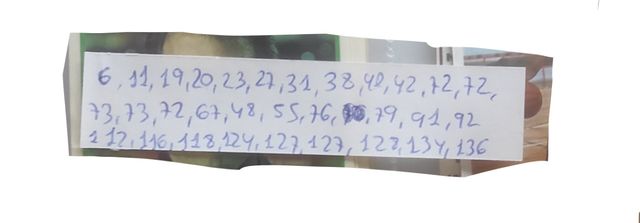 6, 11, 19, 20, 23, 27, 31, 38, 40, 42, 72, 72,
73, 73, 72, 67, 48, 55, 76, 79, 91, 92
112, 116, 118, 124, 127, 127, 128, 134, 136